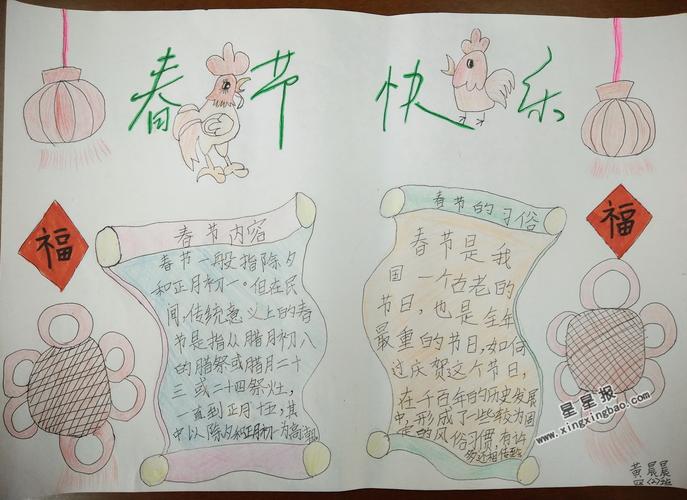 春节 快乐
福
福
春节内容
春节一般指除夕
和正月初一。但在民
间,传统意义上的春
节是指从腊月初八
的腊祭或腊月二十
三或二十四祭灶,
一直到正月十五,其
中以除夕和正月初一为高潮
春节的习俗
春节是我
国一个古老的
节日,也是全年
最重的节日,如何
过庆贺这个节日,
在千百年的历史发展
中,形成了一些较为固
定的风俗习惯,有许
多还相传至
星星报
www.xingxingbao.com
黄晨晨